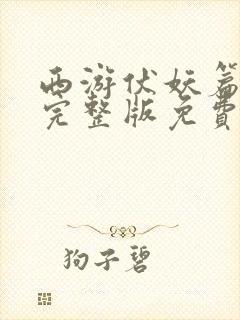 西游伏妖篇
完整版免費
狗子碧